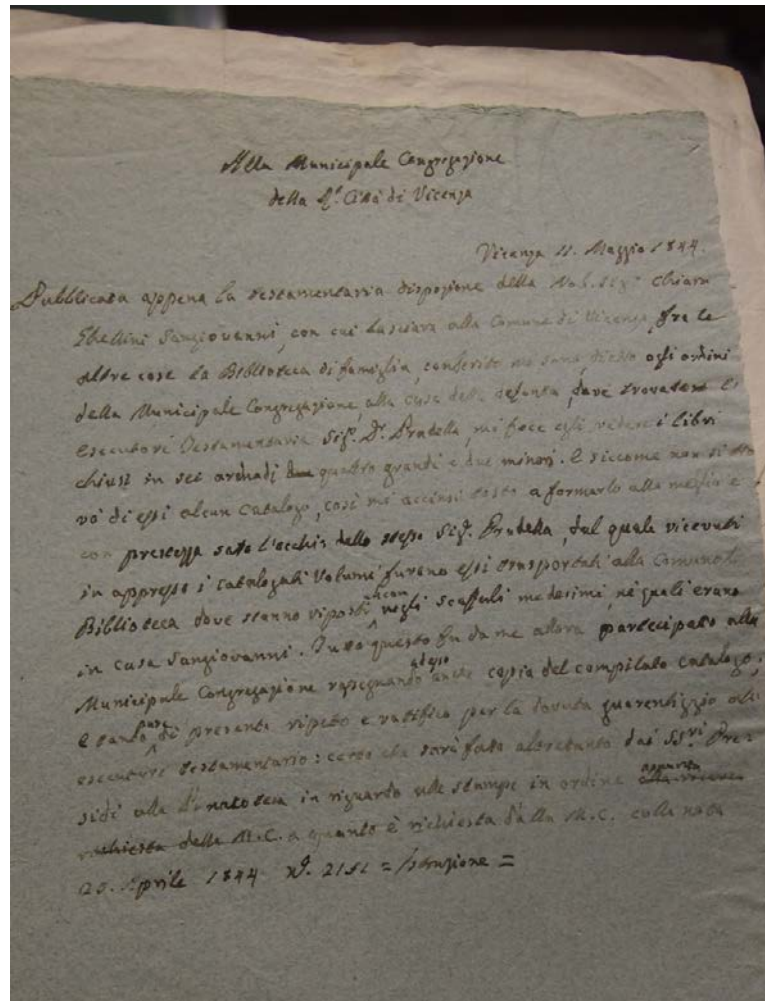 Alla Municipale Congregazione
della R.ª Città di Vicenza
Vicenza 11. Maggio 1844.
Pubblicata appena la testamentaria disposizione della Nob. Sigª Chiara
Ghellini Sangiovanni, con cui lasciava alla Comune di Vicenza, fra le
altre cose la Biblioteca di famiglia, conferito mi sono, dietro agli ordini
della Municipale Congregazione, alla casa della defunta, dove trovatosi l'
esecutore Testamentario Sigr. Dr. Pradella, mi fece egli vedere i libri
chiusi in sei armadj quattro grandi e due minori. E siccome non si tro
vò di essi alcun Catalogo, così mi accinsi tosto a formarlo alla meglio e
con prestezza sotto l'occhio dello stesso Sigr. Pradella, dal quale ricevuti
in appresso i catalogati Volumi furono essi trasportati alla Comunale
Biblioteca dove stanno riposti negli scaffali medesimi, ne' quali erano
in casa Sangiovanni. Tutto questo fu da me allora partecipato alla
Municipale Congregazione rassegnando anche copia del compilato Catalogo;
e tanto pure di presente ripeto e ratifico per la dovuta quarentiggia all'
esecutore testamentario: certo che sarà fatto altrettanto dai SSri. Pre=
sidi alla Pinacoteca in riguardo alle stampe in ordine alla
richiesta della M.C. a quanto è richiesta dalla M.C. colla nota
20. Aprile 1844 N.º 2151 = Istruzione =